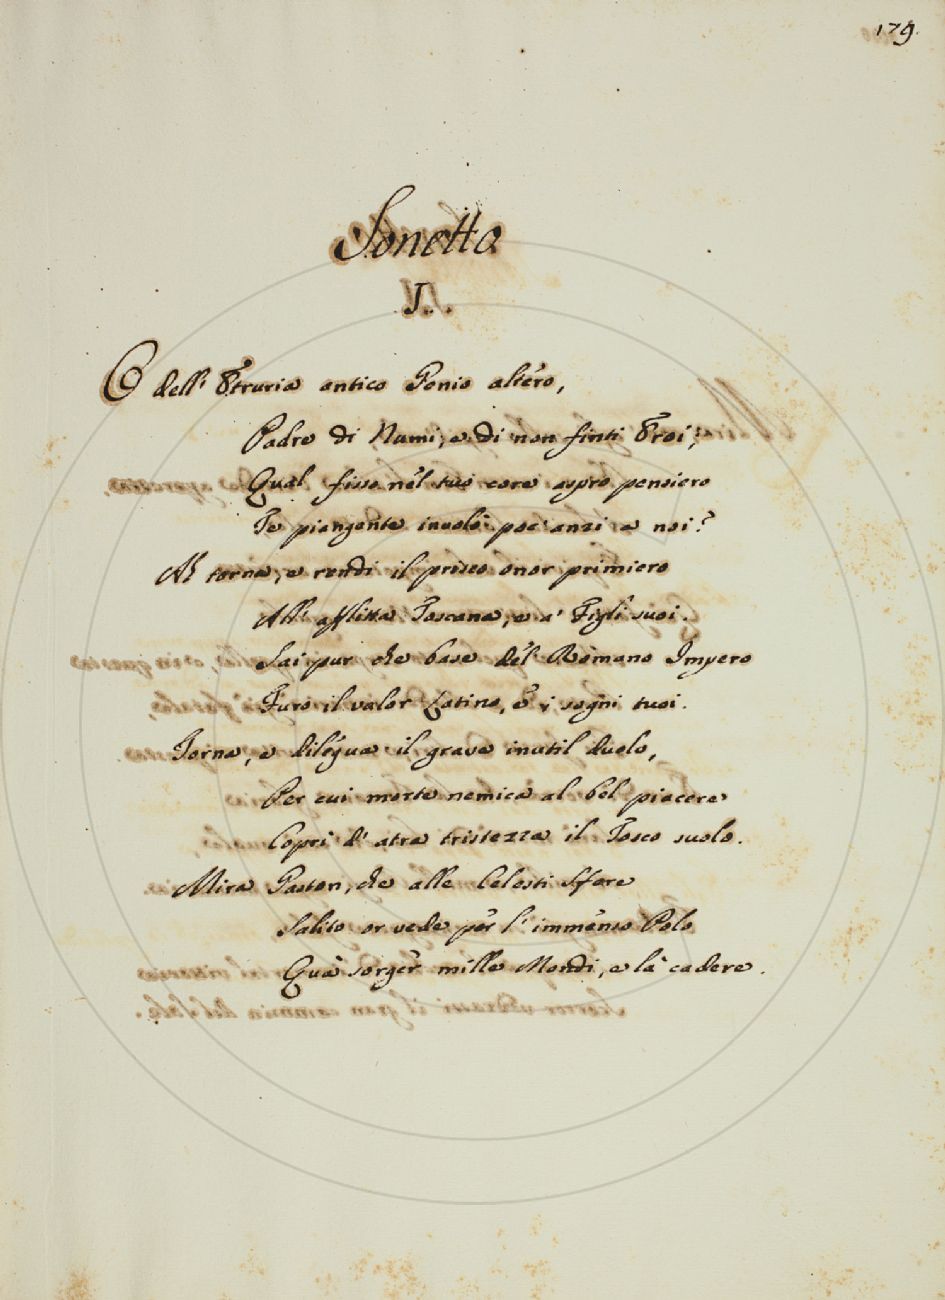 179.
Sonetto
I.
O dell' Etruria antico Genio altéro,
Padre di Numi, e di non finti Eroi,
Qual fisso nél tuo core aspro pensiero
Te piangente involò poc' anzi a noi?
Ah torna, e rendi il prisco onor primiero
All' afflitta Toscana, e a' Figli suoi.
Sai pur che base dél Romano Impero
Furo il valor Latino, é i sogni tuoi.
Torna, e diléqua il grave inutil duolo,
Per cui morte nemica al bel piacere
Coprì d' atra tristezza il Tosco suolo.
Mira Gaston, che alle Celesti Sfere
Salito or vede pér l' imménso Polo
Quà sorgér mille Mondi, e là cadere.